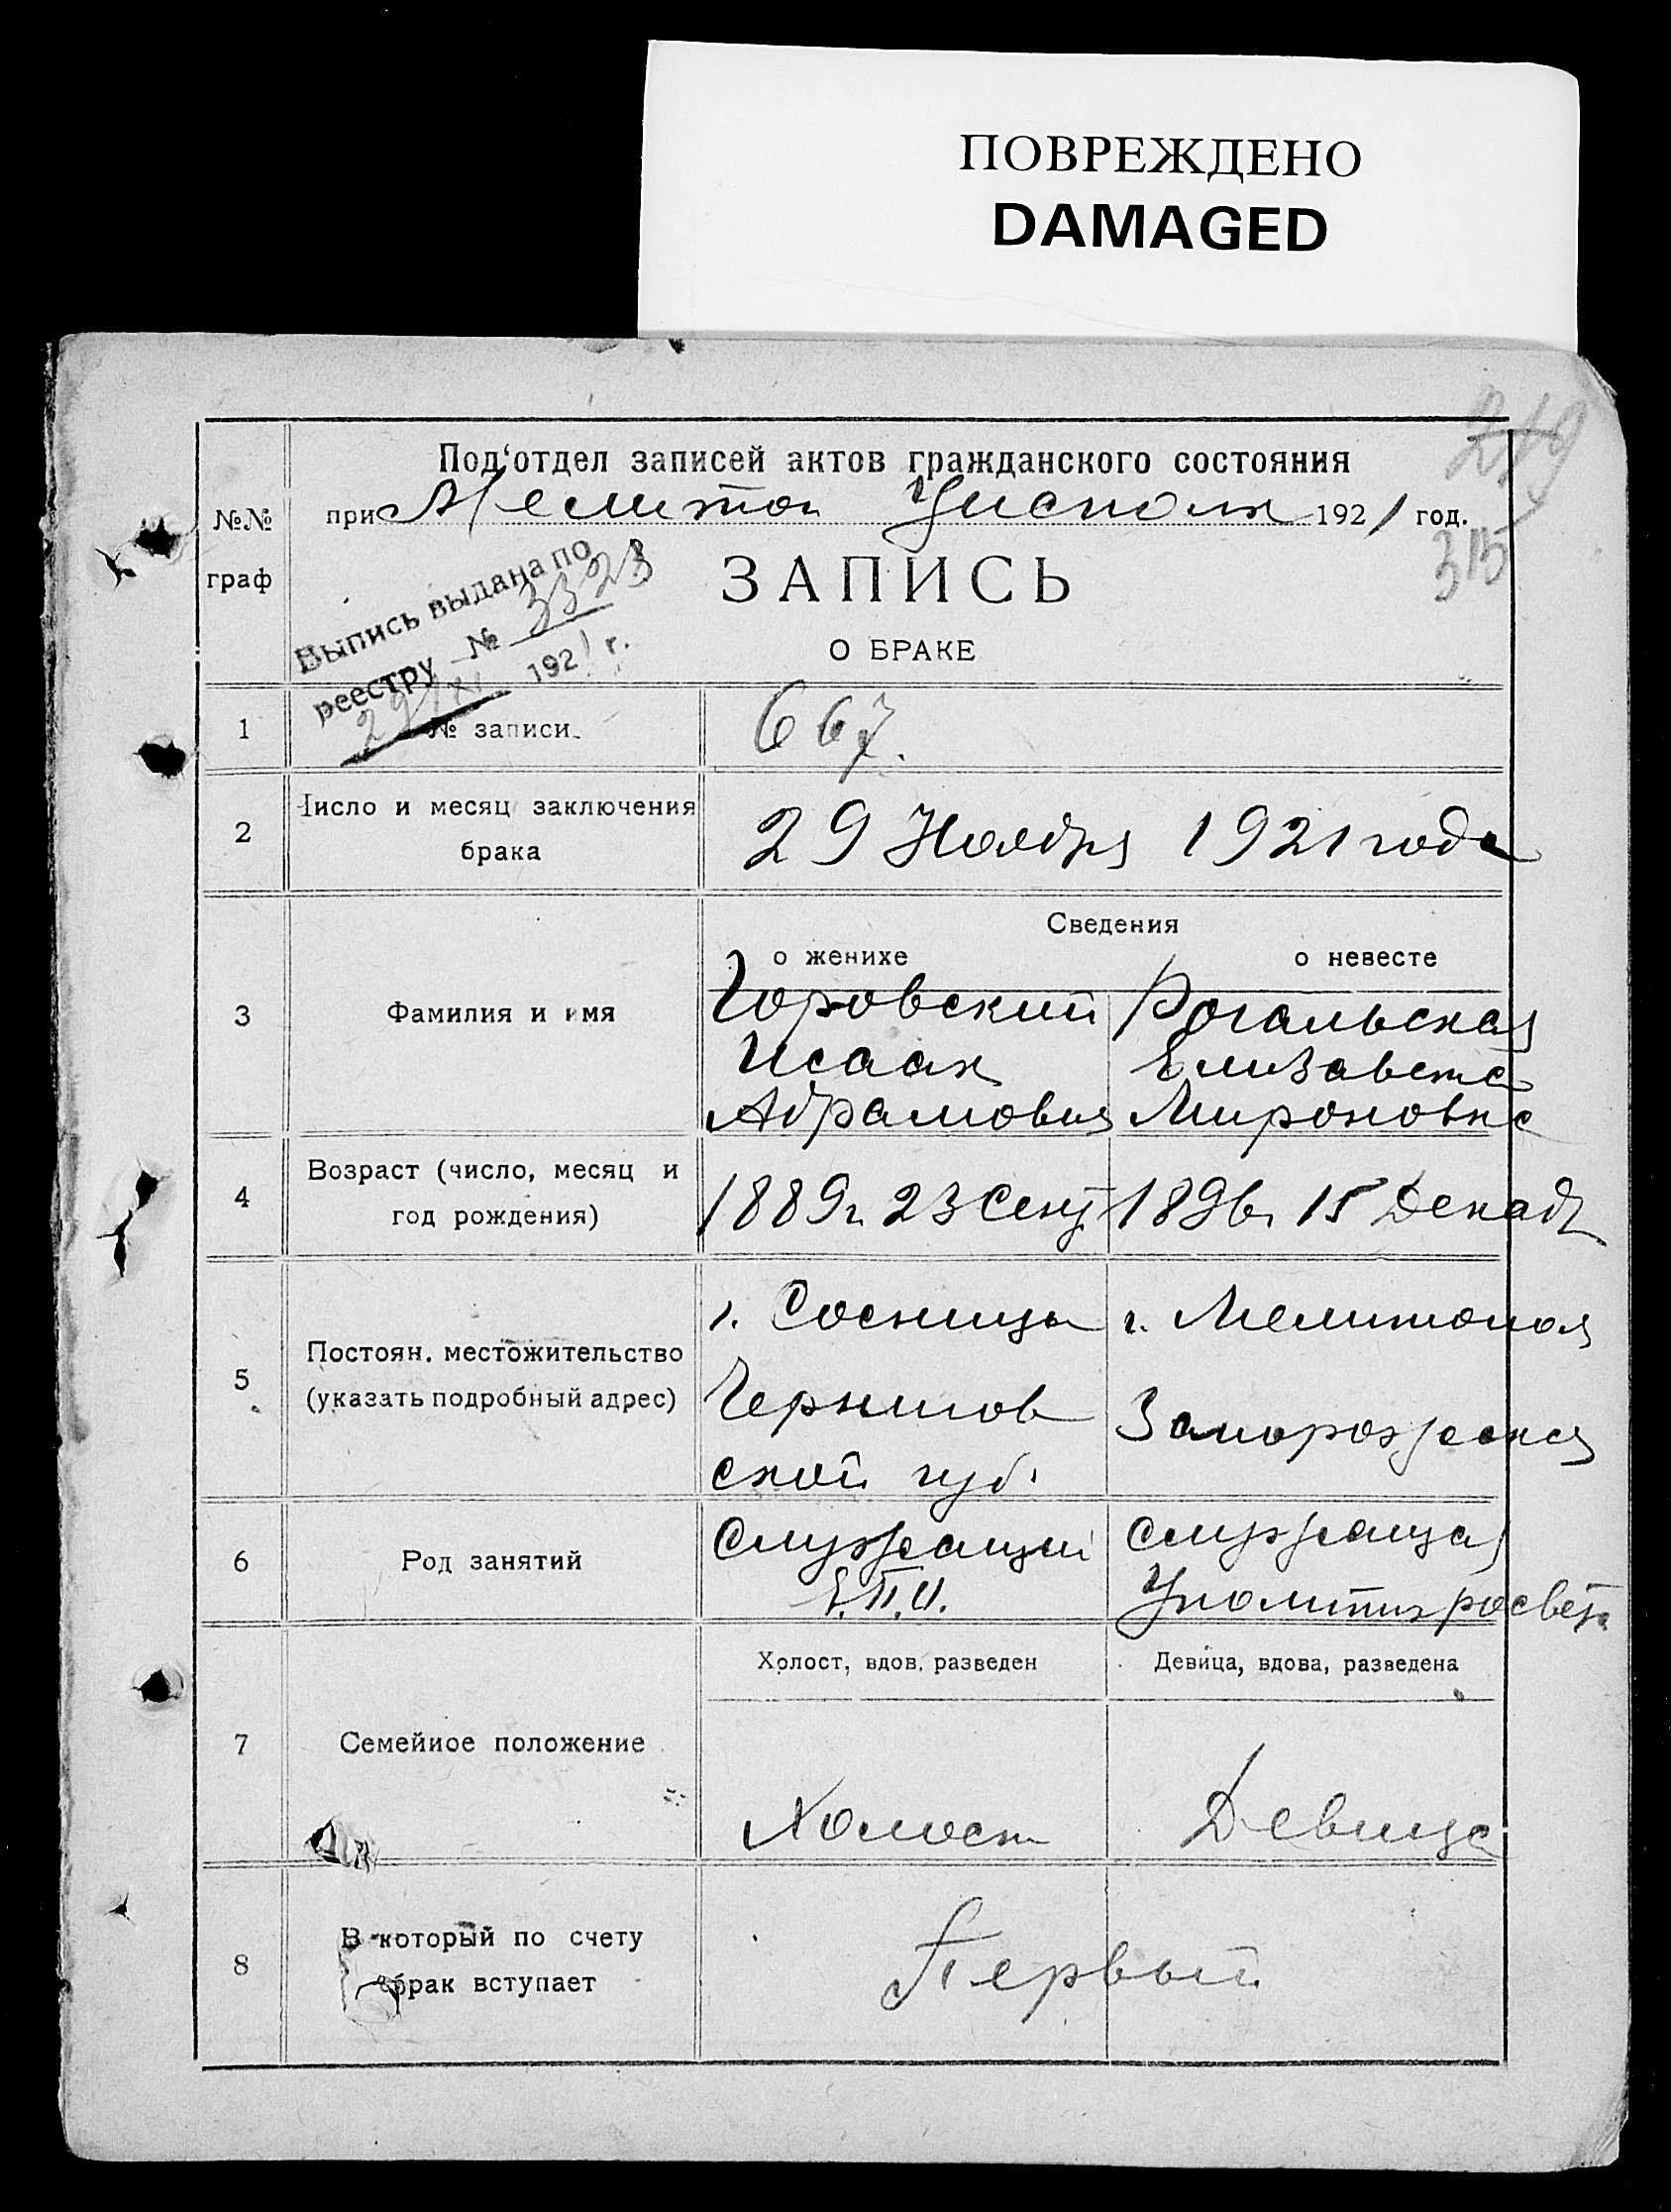 ПОВРЕЖДЕНО
DAMAGED
219
315
Под‘отдел записей актов гражданского состояния
№№ граф
при Мелитоп Уисполк 1921 год.
Выпись выдана по
реестру № 3323
29/XI 1921 г.
ЗАПИСЬ
О БРАКЕ
1 № записи 667.
2 Число и месяц заключения брака 29 Ноября 1921 года
Сведения
о женихе о невесте
3 Фамилия и имя
Горовский Рогальская
Исаак Елизавета
Абрамович Мироновна
4 Возраст (число, месяц и год рождения)
1889г. 23 Сент 1896г. 15 Декаб
5 Постоян. местожительство (указать подробный адрес)
г. Сосницы г. Мелитополя
Чернигов Запорожская
ской губ.
6 Род занятий
Служащий служащая
Е.П.О. Уполитпросвета
7 Семейное положение
Холост, вдов, разведен Девица, вдова, разведена
Холост Девица
8 В который по счету брак вступает
Первый